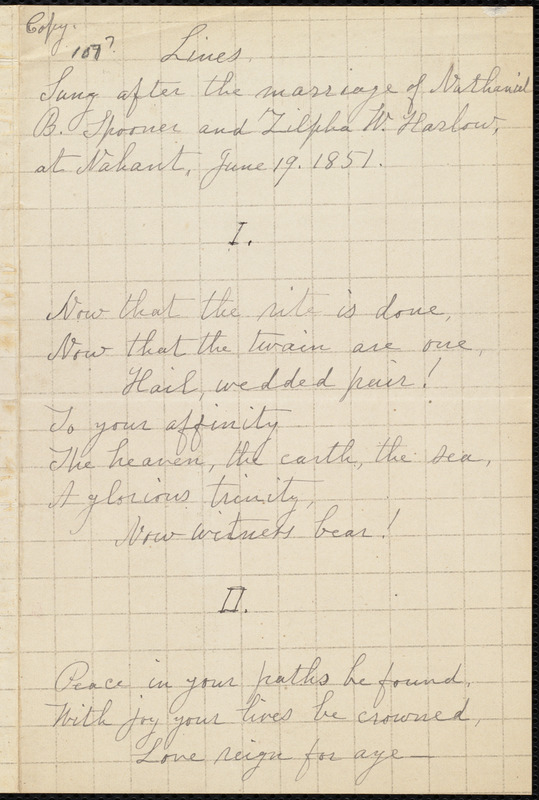 Copy.
107?
Lines.
Sung after the marriage of Nathaniel
B. Spooner and Zilpha W. Harlow,
at Nahant, June 19. 1851.
I.
Now that the rite is done,
Now that the twain are one,
Hail, wedded pair!
To your affinity
The heaven, the earth, the sea,
A glorious trinity,
Now witness bear!
II.
Peace in your paths be found,
With joy your lives be crowned,
Love reign for aye—